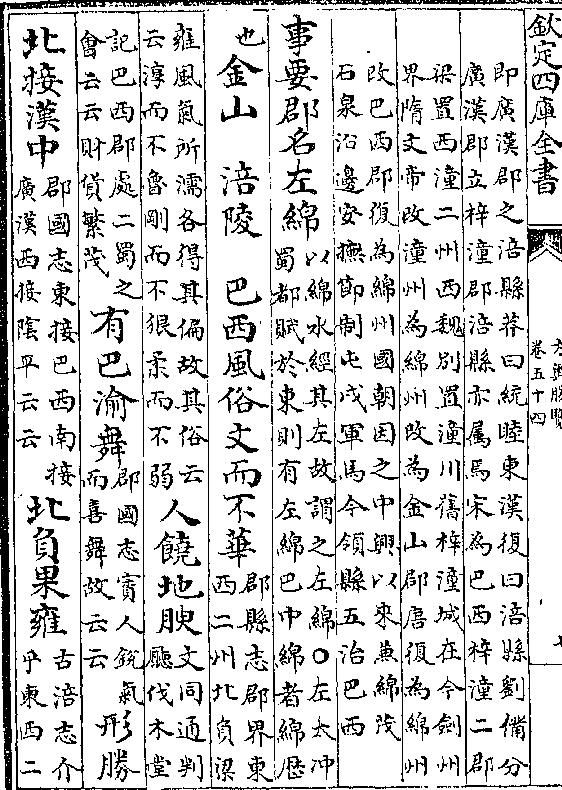 欽定四庫全書
方輿勝覽
卷五十四
即廣漢郡之涪縣莽曰統睦東漢復曰涪縣劉備分
廣漢郡立梓潼郡涪縣亦屬焉宋為巴西梓潼二郡
梁置西潼二州西魏別置潼川舊梓潼城在今劍州
界隋文帝改潼州為綿州改為金山郡唐復為綿州
改巴西郡復為綿州國朝因之中興以來兼綿茂
石泉沿邊安撫節制屯戍軍馬今領縣五治巴西
事要郡名左綿以綿水經其左故謂之左綿○左太冲蜀都賦於東則有左綿巴中綿者綿歷
也金山 涪陵 巴西風俗文而不華郡縣志郡界東西二州北負梁
雍風氣所濡各得其偏故其俗云云淳而不魯剛而不狠柔而不弱人饒地腴文同通判廳伐木堂
記巴西郡處二蜀之會云云財貨繁茂有巴渝舞郡國志賨人銳氣而喜舞故云云形勝
北接漢中郡國志東接巴西南接廣漢西接陰平云云北負果雍古涪志介乎東西二